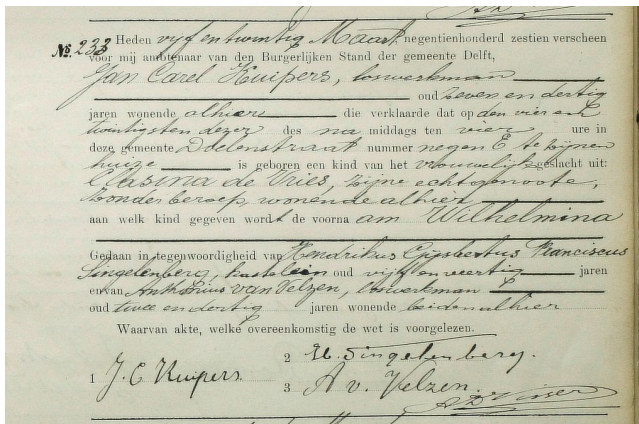 No. 233 Heden vijf en twintig Maart negentienhonderd zestien verscheen
voor mij ambtenaar van den Burgerlijken Stand der gemeente Delft,
Jan Carel Kuipers, loswerkman
oud zeven en dertig
jaren wonende alhier die verklaarde dat op den vier en
twintigsten dezer des na middags ten vier ure in
deze gemeente Doelenstraat nummer negen E te zijnen
huize is geboren een kind van het vrouwelijk geslacht uit:
Clasina de Vries, zijne echtgenoote,
zonder beroep, wonende alhier
aan welk kind gegeven wordt de voorna am Wilhelmina
Gedaan in tegenwoordigheid van Hendrikus Gijsbertus Franciscus
Singelenberg, kastelein oud vijf en veertig jaren
en van Anthonius van Velzen, loswerkman
oud twee en dertig jaren wonende beiden alhier
Waarvan akte, welke overeenkomstig de wet is voorgelezen.
2 H. Singelenberg.
1 J. C. Kuipers.
3 A v. Velzen.
Visser